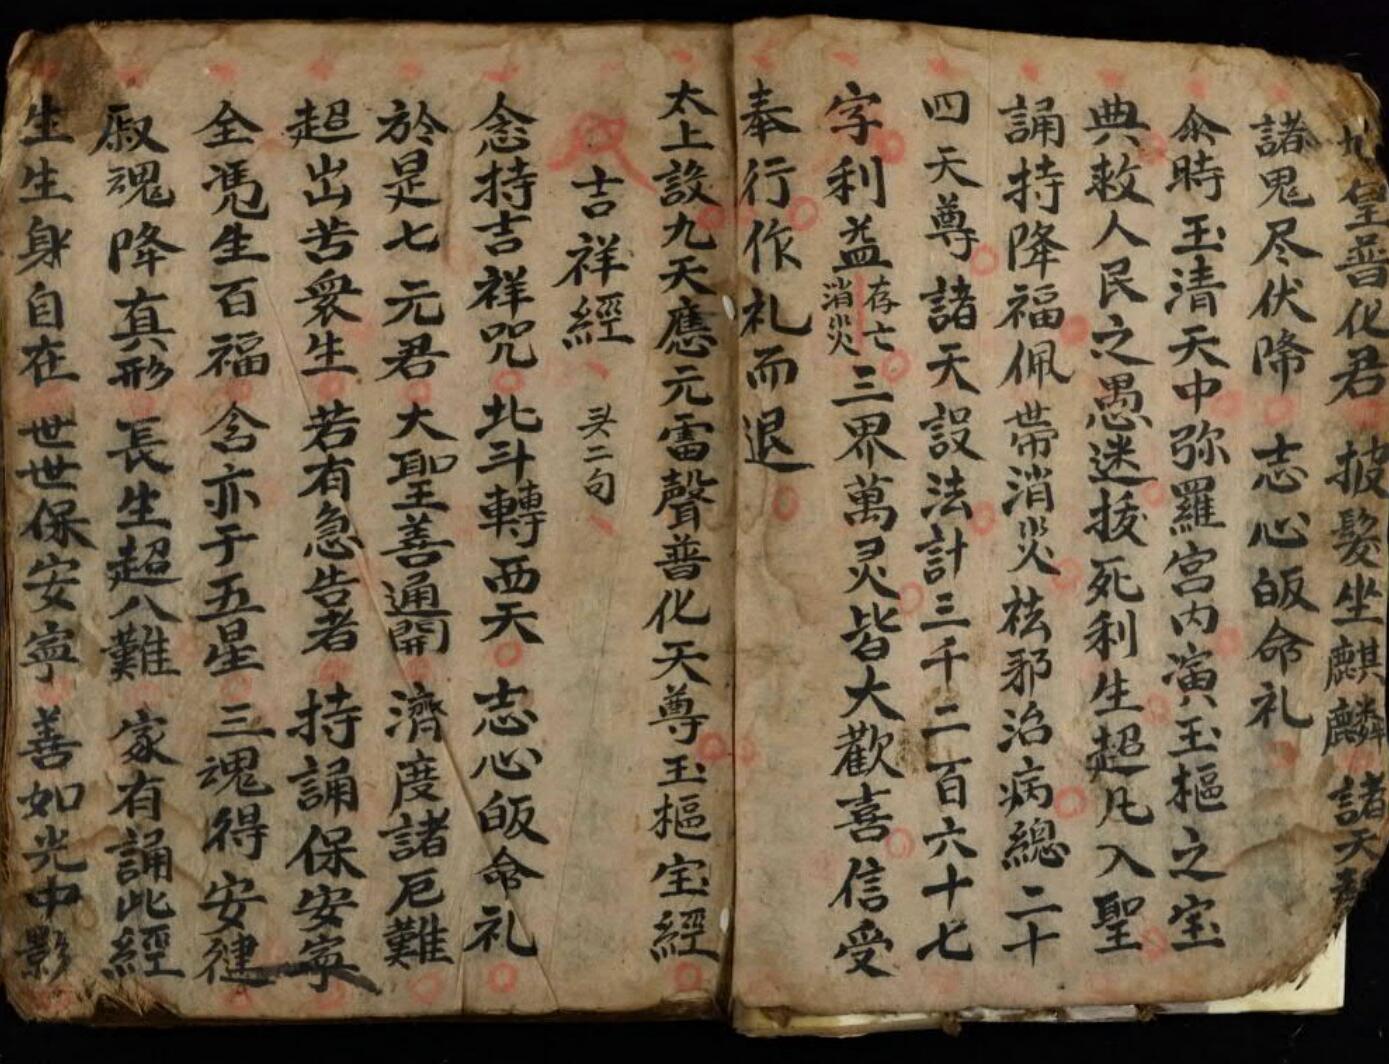 皇普化君 披髮坐麒麟 諸天
諸鬼尽伏降 志心皈命礼
尒時玉清天中弥羅宮内演玉樞之宝
典救人民之愚迷拔死利生超凡入聖
誦持降福佩带消災祛邪治病總二十
四天尊諸天設法計三千二百六十七
字利益存亡消災三界萬灵皆大歡喜信受
奉行作礼而退
太上設九天應元雷聲普化天尊玉樞宝經
吉祥經 头二句
念持吉祥咒 北斗轉西天 志心皈命礼
於是七元君 大聖善通開 濟度諸厄難
超出苦衆生 若有急告者 持誦保安寧
全凴生百福 含亦于五星 三魂得安健
魂降真形 長生超八難 家有誦此經
生生身自在 世世保安寧 善如光中影